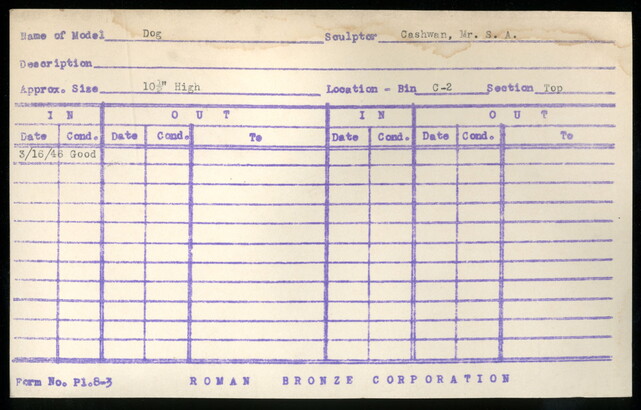 Name of Model Dog Sculptor Cashwan, Mr. S. A.
Description
Approx. Size 10½" High Location - Bin C-2 Section Top
I N O U T I N O U T
Date Cond. Date Cond. To Date Cond. Date Cond. To
3/16/46 Good
Form No. Pl.8-3 ROMAN BRONZE CORPORATION